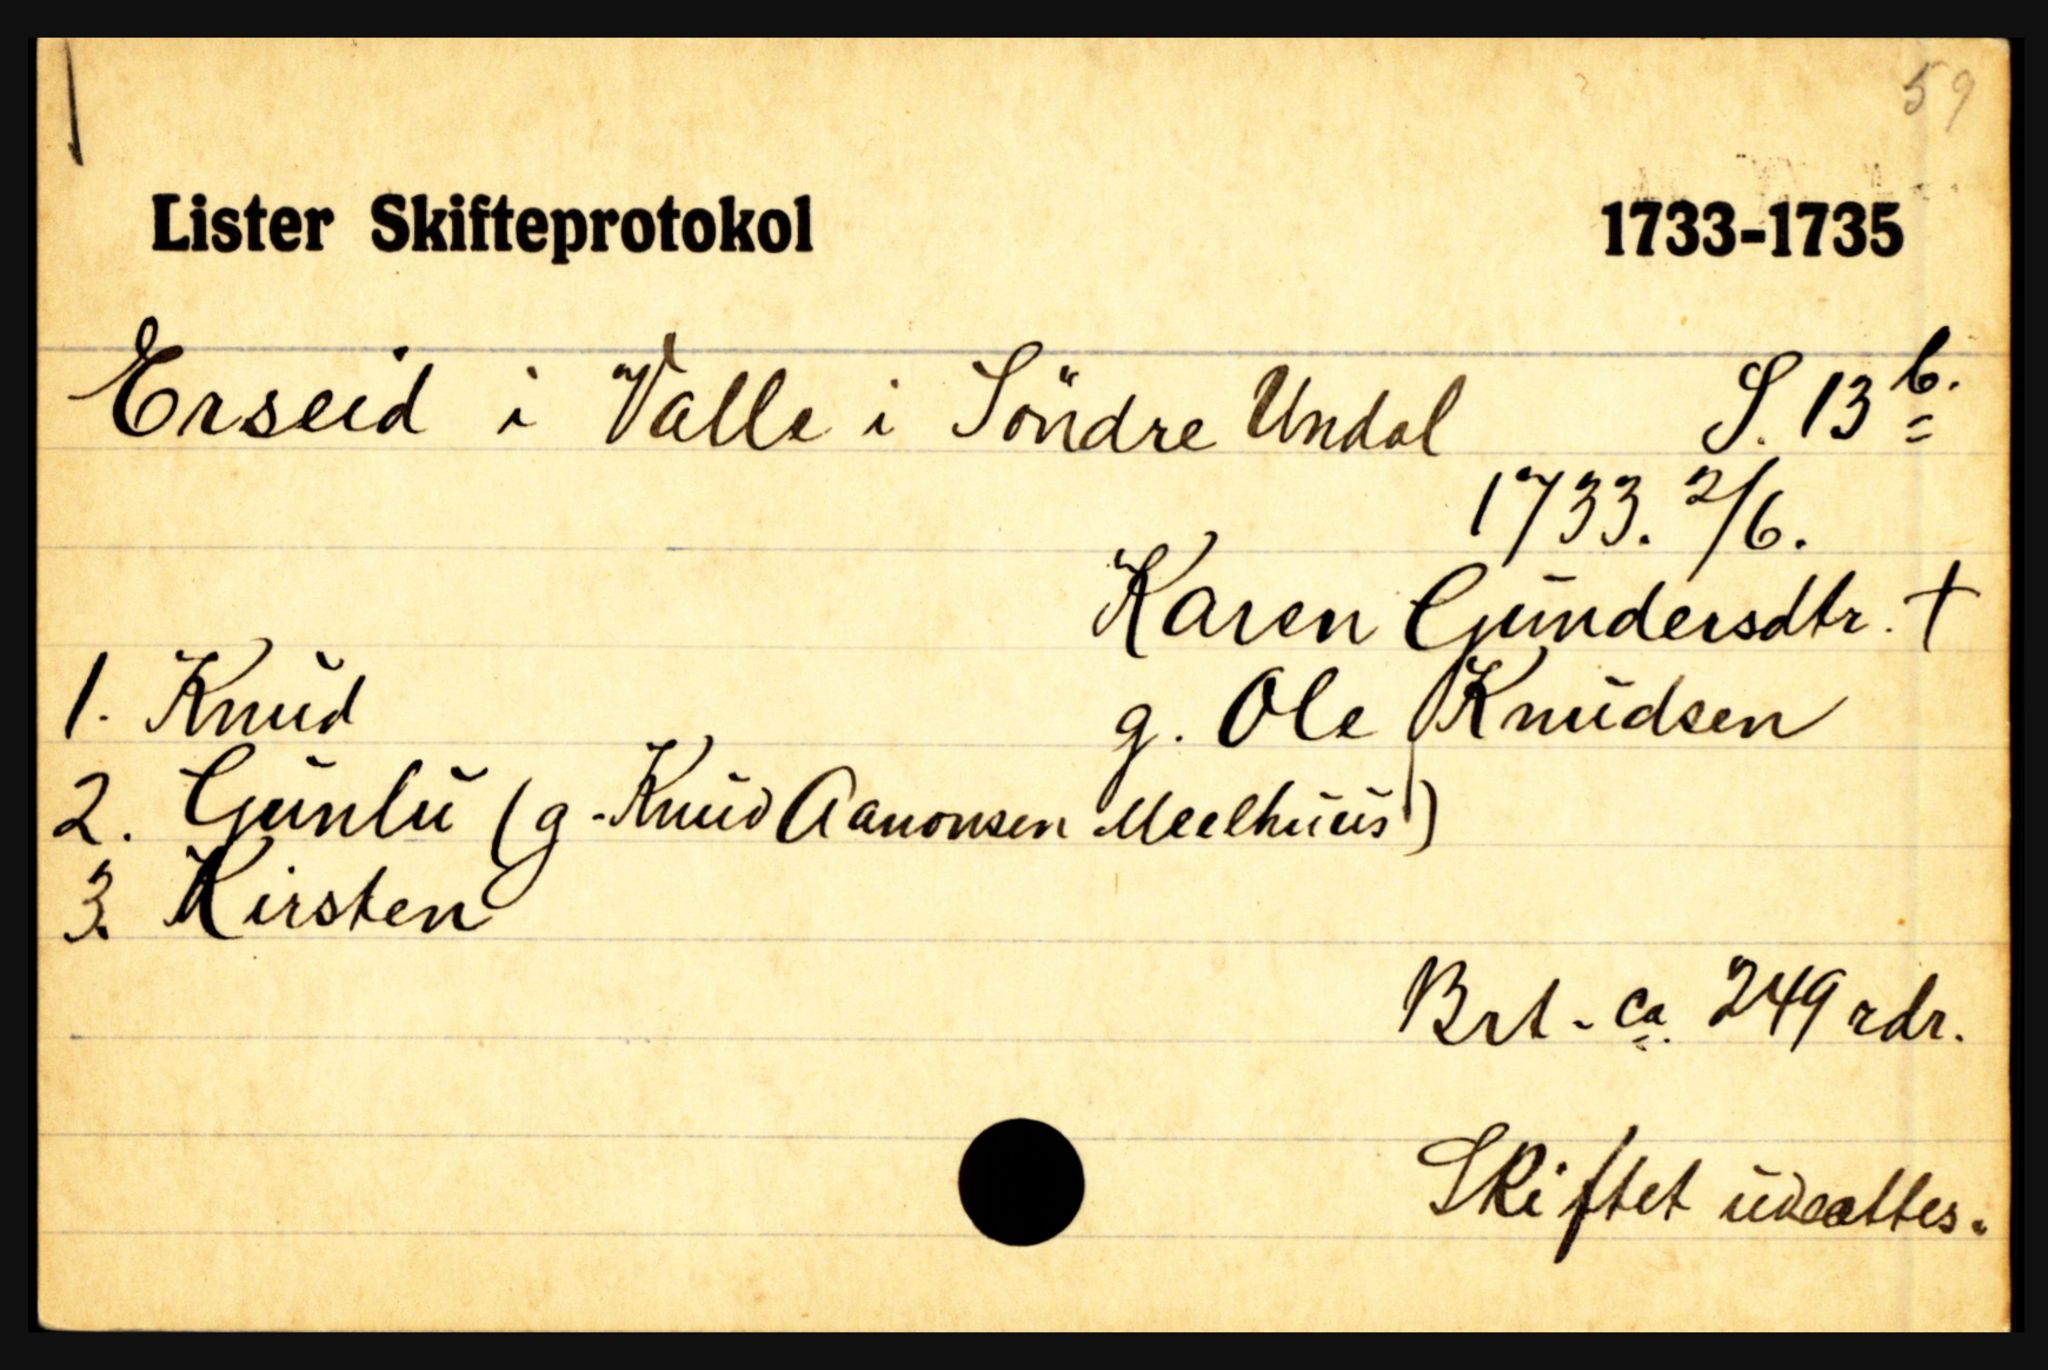 59
Lister Skifteprotokol 1733-1735
Erseid i Valle i Söndre Undal S. 13 b.
1733. 2/6.
Karen Gundersdtr. †
1. Knud g. Ole Knudsen
2. Gunlu (g. Knud Aanonsen Meelhuus)
3. Kirsten
Brt. ca. 249 rdr.
Skiftet udsættes.